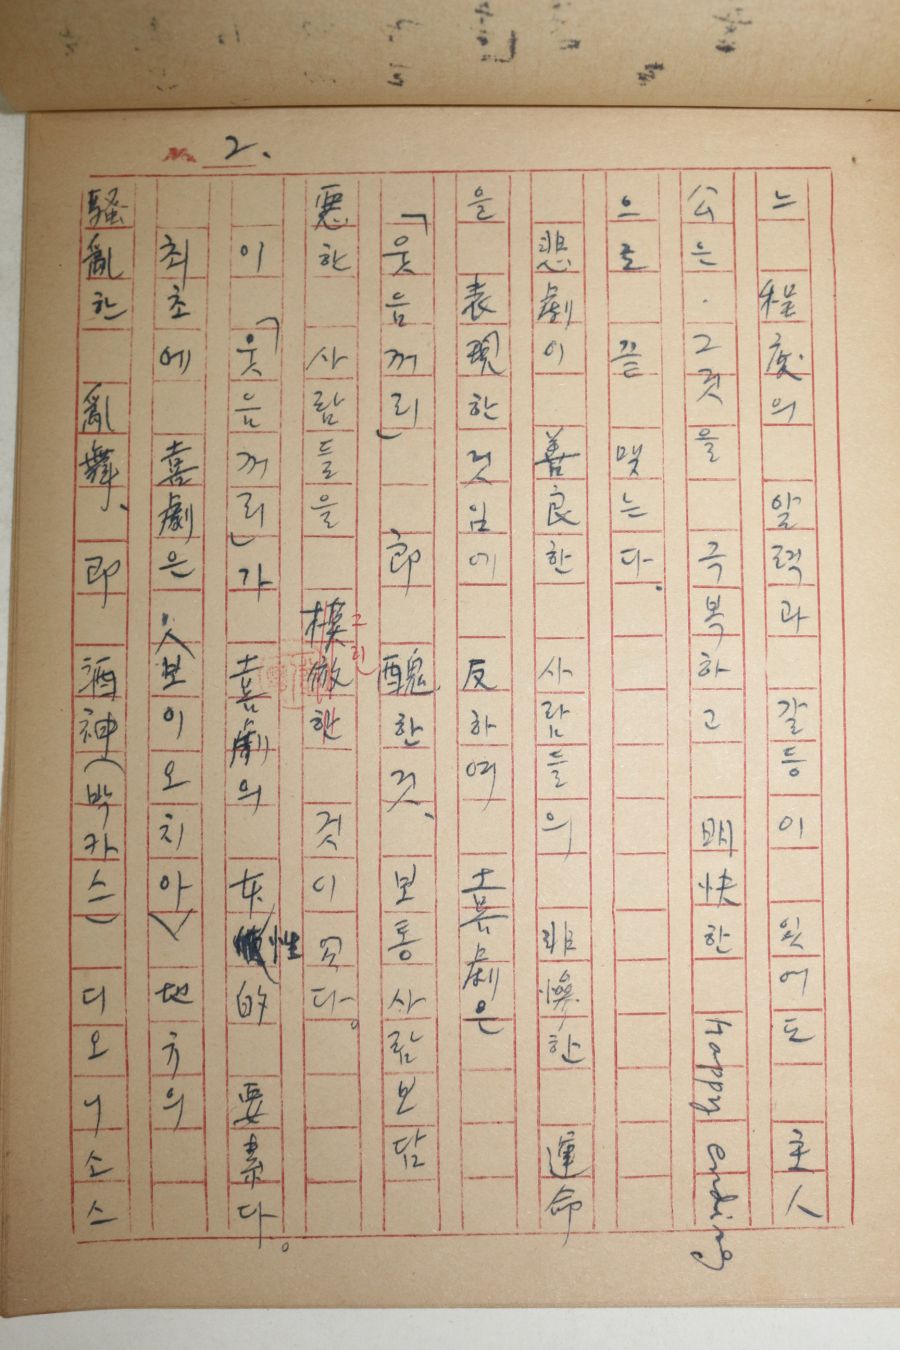 2.
느 程度의 알력과 갈등이 있어도 主人
公은 . 그것을 극복하고 明快한 Happy ending
으로 끝 맺는다.
悲劇이 善良한 사람들의 悲慘한 運命
을 表現한 것임에 反하여 喜劇은
「웃음꺼리」 即 醜한 것、 보통 사람보담
惡한 사람들을 模倣한 것이 였다。
이 「웃음꺼리」가 喜劇의 本性的 要素다。
최초에 喜劇은 (보이오치아) 地方의
騷亂한 亂舞、 即 酒神(박카스) 디오니소스